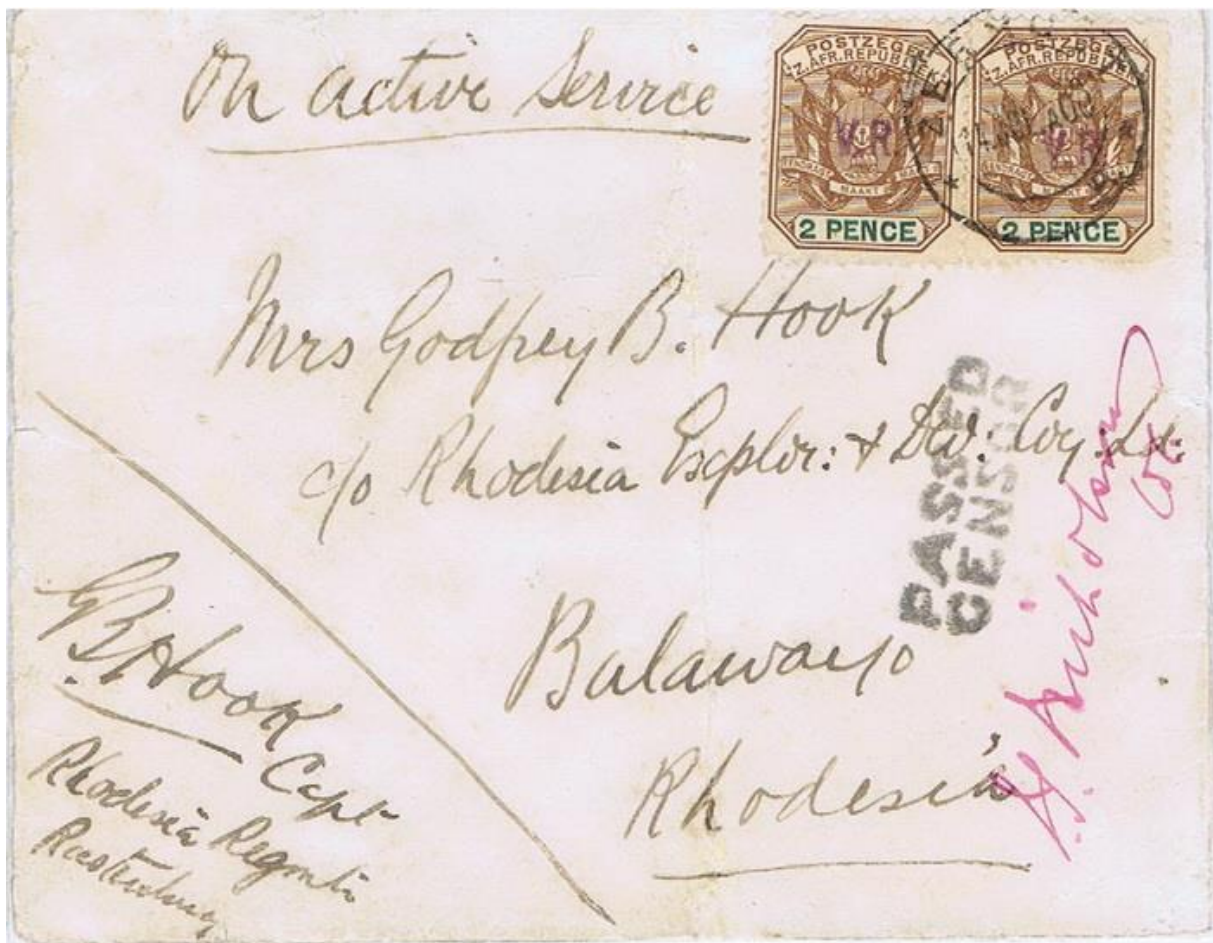 On active Service
POSTZEGEL
Z.AFR.REPUBLIEK
V.R
EENDRAGT MAAKT MAGT
2 PENCE
POSTZEGEL
Z.AFR.REPUBLIEK
V.R
EENDRAGT MAAKT MAGT
2 PENCE
ZEERUST
Mrs Godfrey B. Hook
c/o Rhodesia Explor: & Dev: Coy: Ld:
Bulawayo
Rhodesia
PASSED
CENSOR
Col
GBHook
Capt
Rhodesia Regmt
Rustenburg